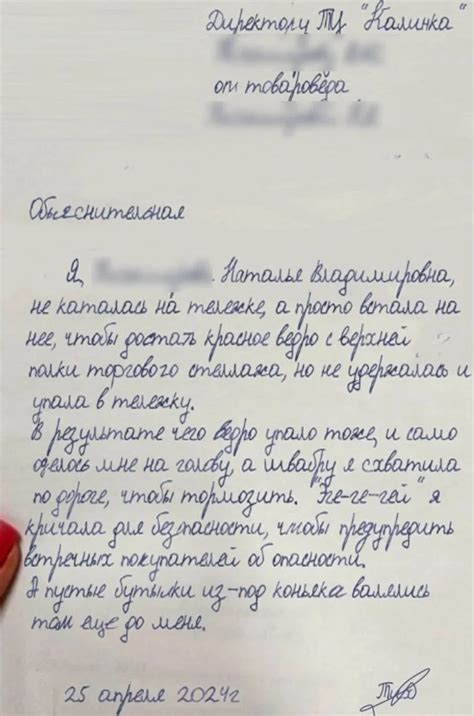 Директору ТЦ "Калинка"
от товароведа
Объяснительная
Я, Наталье Владимировна,
не каталась на тележке, а просто встала на
нее, чтобы достать красное ведро с верхней
полки торгового стеллажа, но не удержалась и
упала в тележку.
В результате чего ведро упало тоже, и само
оделось мне на голову, а швабру я схватила
по дороге, чтобы тормозить. "Йе-ге-гей" я
кричала для безопасности, чтобы предупредить
встречных покупателей об опасности.
А пустые бутылки из-под коньяка валялись
там еще до меня.
25 апреля 2024г